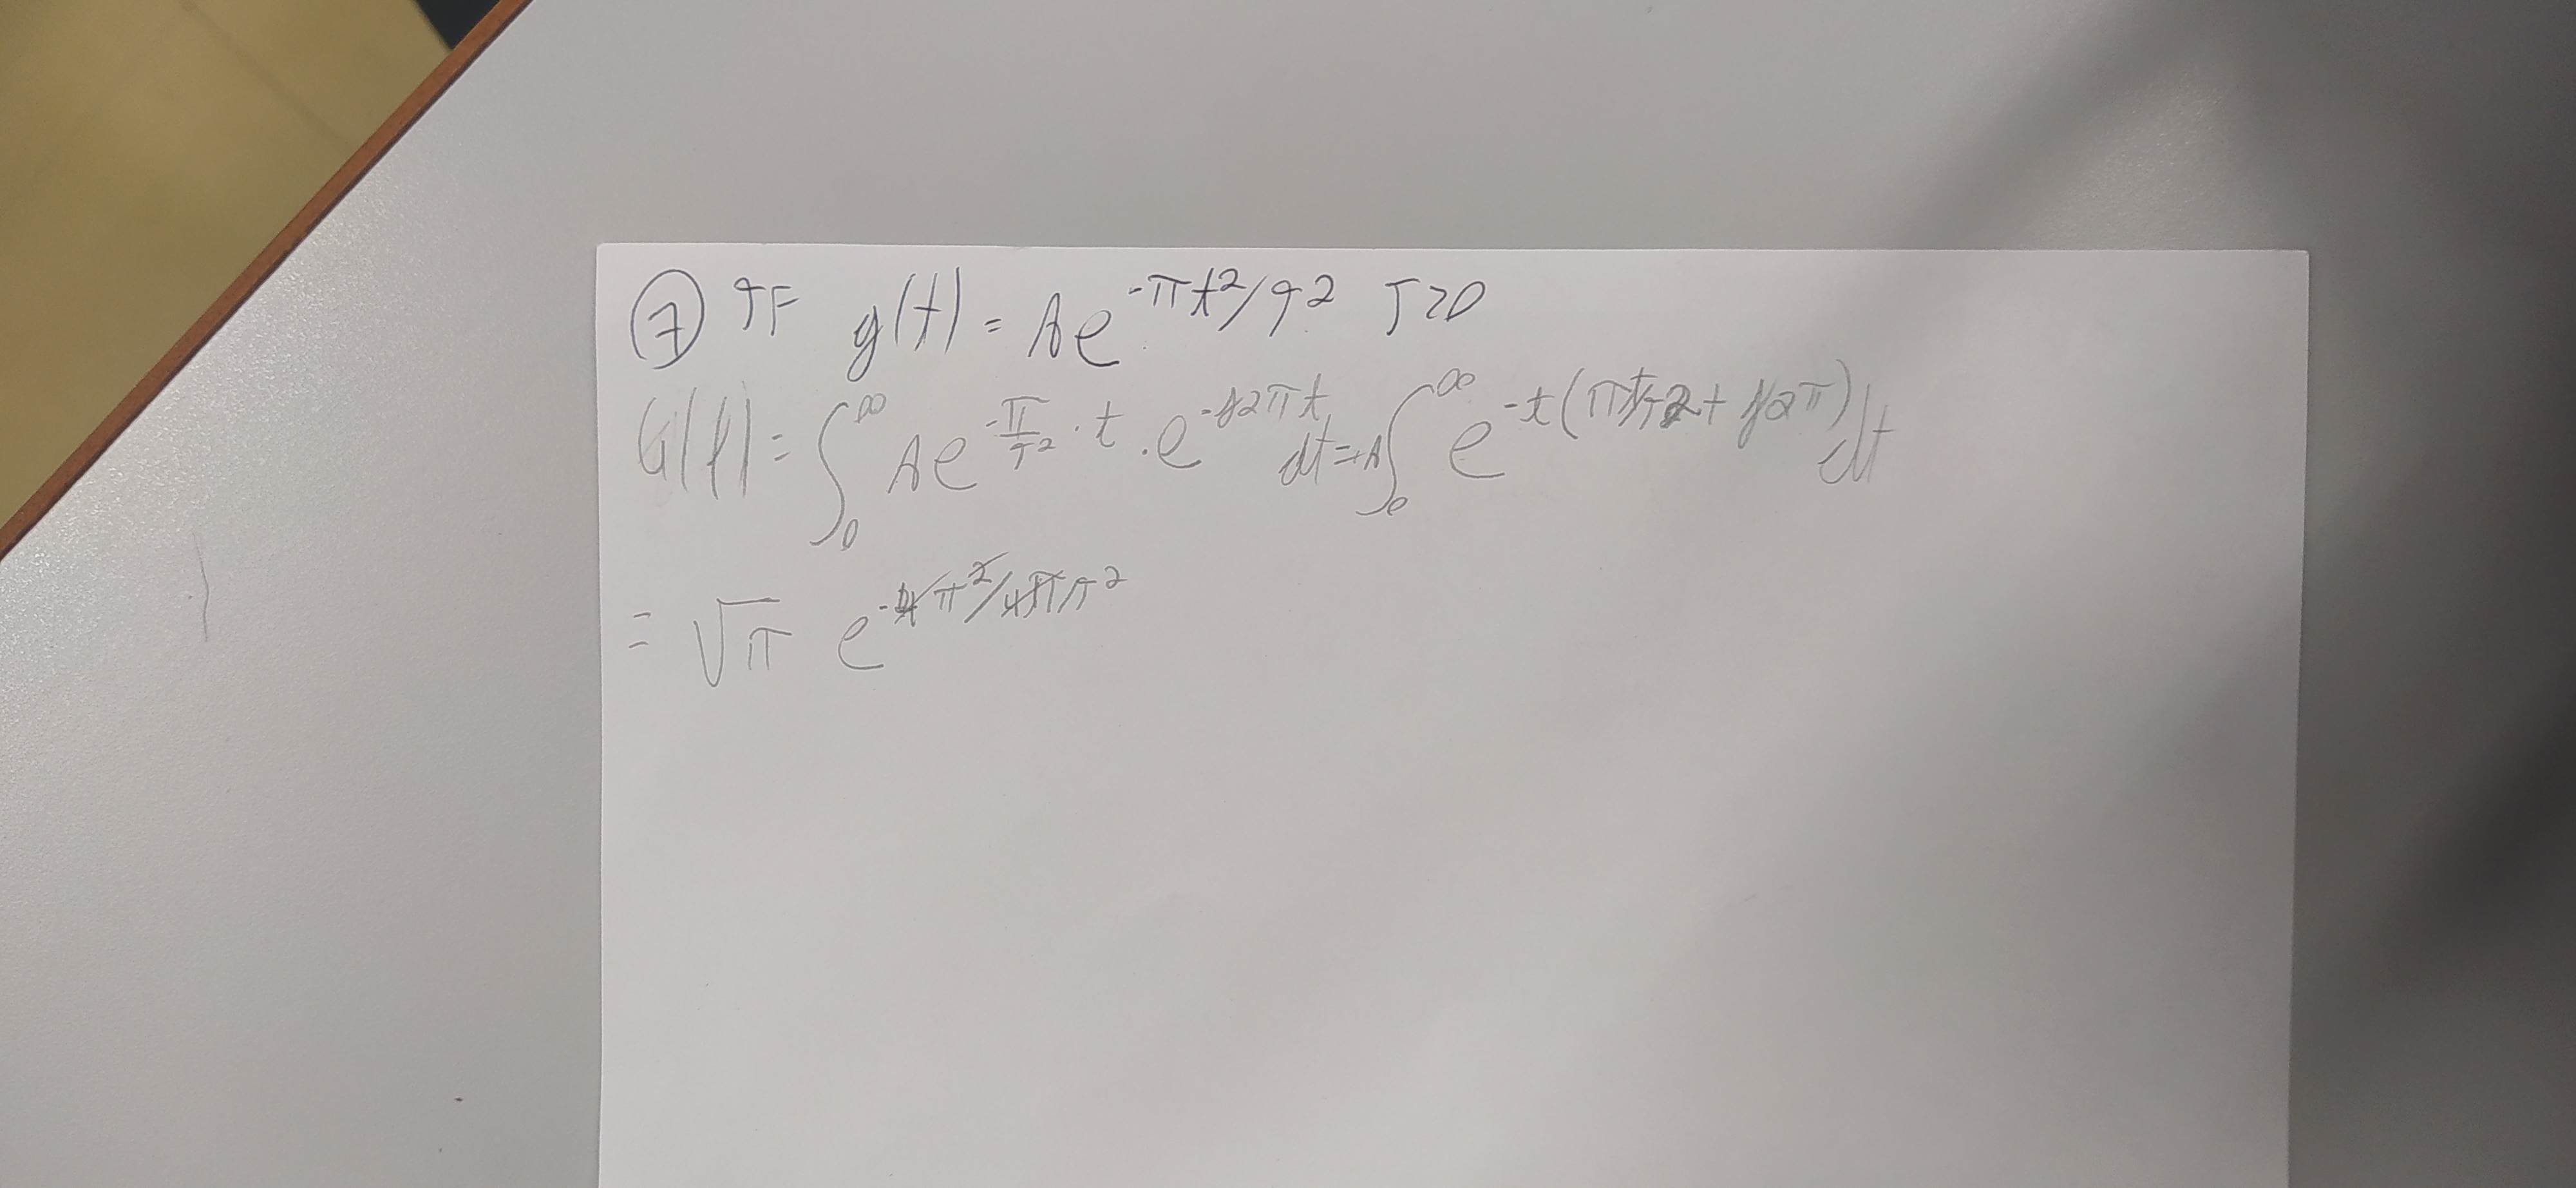 ⑦ TF g(t) = Ae^{-πt²/T²} T>0
G(f) = ∫₀^∞ Ae^{-π/T² · t} · e^{-j2πt} dt = A∫₀^∞ e^{-t(πt/T² + j2π)} dt
= √π e^{-4π²/4π/T²}